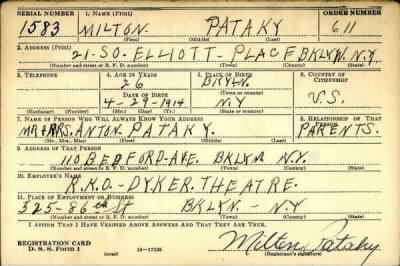 SERIAL NUMBER 1. NAME (Print) ORDER NUMBER
1583 MILTON PATAKY 611
(First) (Middle) (Last)
2. ADDRESS (Print)
21-SO-ELLIOTT-PLACE BKLYN. N.Y.
(Number and street or R. F. D. number) (Town) (County) (State)
3. TELEPHONE 4. AGE IN YEARS 5. PLACE OF BIRTH 6. COUNTRY OF CITIZENSHIP
26 BKLYN.
DATE OF BIRTH (Town or county)
4-29-1914 N.Y U.S.
(Exchange) (Number) (Mo.) (Day) (Yr.) (State or country)
7. NAME OF PERSON WHO WILL ALWAYS KNOW YOUR ADDRESS 8. RELATIONSHIP OF THAT PERSON
MR+MRS. ANTON. PATAKY. PARENTS.
(Mr., Mrs., Miss) (First) (Middle) (Last)
9. ADDRESS OF THAT PERSON
110 BEDFORD-AVE. BKLYN N.Y.
(Number and street or R. F. D. number) (Town) (County) (State)
10. EMPLOYER'S NAME
R.K.O-DYKER. THEATRE.
11. PLACE OF EMPLOYMENT OR BUSINESS
525-86th St BKLYN-N.Y
(Number and street or R. F. D. number) (Town) (County) (State)
I AFFIRM THAT I HAVE VERIFIED ABOVE ANSWERS AND THAT THEY ARE TRUE.
REGISTRATION CARD
D. S. S. Form 1 16-17105 Milton Pataky
(Registrant's signature)